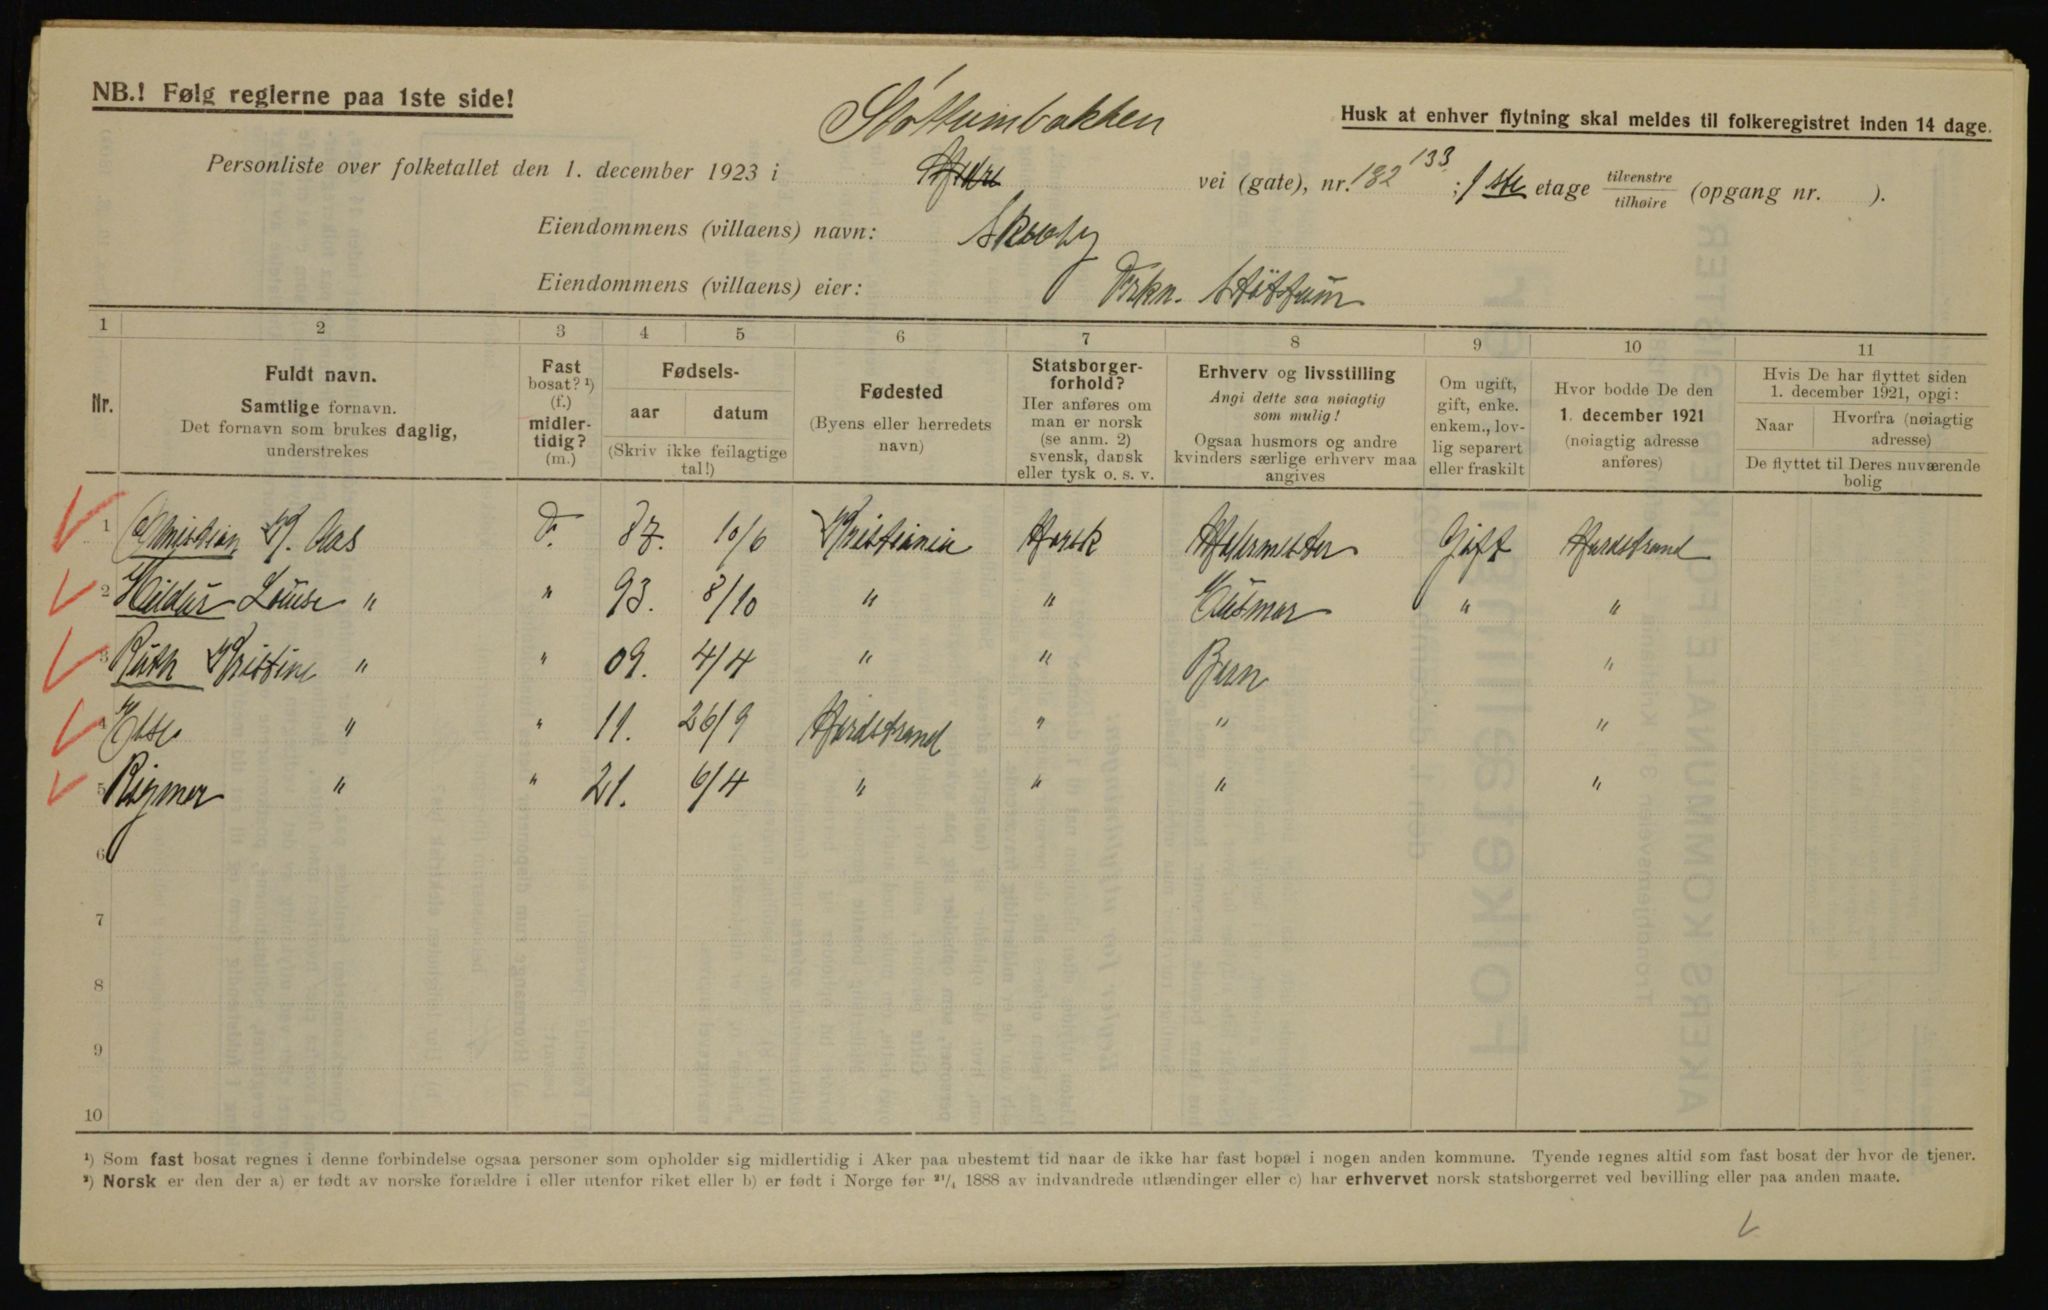 NB.! Følg reglerne paa 1ste side!
Støttumbakken
Husk at enhver flytning skal meldes til folkeregistret inden 14 dage.
Personliste over folketallet den 1. december 1923 i vei (gate), nr. 182 133 ; 1 ste etage tilvenstre tilhøire (opgang nr. ).
Eiendommens (villaens) navn: Skooly
Eiendommens (villaens) eier: Frkn. Støttum
1 2 3 4 5 6 7 8 9 10 11
Nr.
Fuldt navn.
Samtlige fornavn.
Det fornavn som brukes daglig,
understrekes
Fast
bosat? ¹)
(f.)
midler-
tidig?
(m.)
Fødsels-
aar datum
(Skriv ikke feilagtige
tal!)
Fødested
(Byens eller herredets
navn)
Statsborger-
forhold?
Her anføres om
man er norsk
(se anm. 2)
svensk, dansk
eller tysk o. s. v.
Erhverv og livsstilling
Angi dette saa nøiagtig
som mulig!
Ogsaa husmors og andre
kvinders særlige erhverv maa
angives
Om ugift,
gift, enke.
enkem., lov-
lig separert
eller fraskilt
Hvor bodde De den
1. december 1921
(nøiagtig adresse
anføres)
Hvis De har flyttet siden
1. december 1921, opgi:
Naar Hvorfra (nøiagtig
adresse)
De flyttet til Deres nuværende
bolig
1 Christian K. Aas F. 87. 10/6 Kristiania Norsk Malermester Gift Nordstrand
2 Hildur Louise " " 93. 8/10 " " Husmor " "
3 Ruth Kristine " " 09. 4/4 " " Barn "
4 Else " " 11. 26/9 Nordstrand " " "
5 Rigmor " " 21. 6/4 " " " "
6
7
8
9
10
¹) Som fast bosat regnes i denne forbindelse ogsaa personer som opholder sig midlertidig i Aker paa ubestemt tid naar de ikke har fast bopæl i nogen anden kommune. Tyende regnes altid som fast bosat der hvor de tjener.
²) Norsk er den der a) er født av norske forældre i eller utenfor riket eller b) er født i Norge før ²¹/₄ 1888 av indvandrede utlændinger eller c) har erhvervet norsk statsborgerret ved bevilling eller paa anden maate.